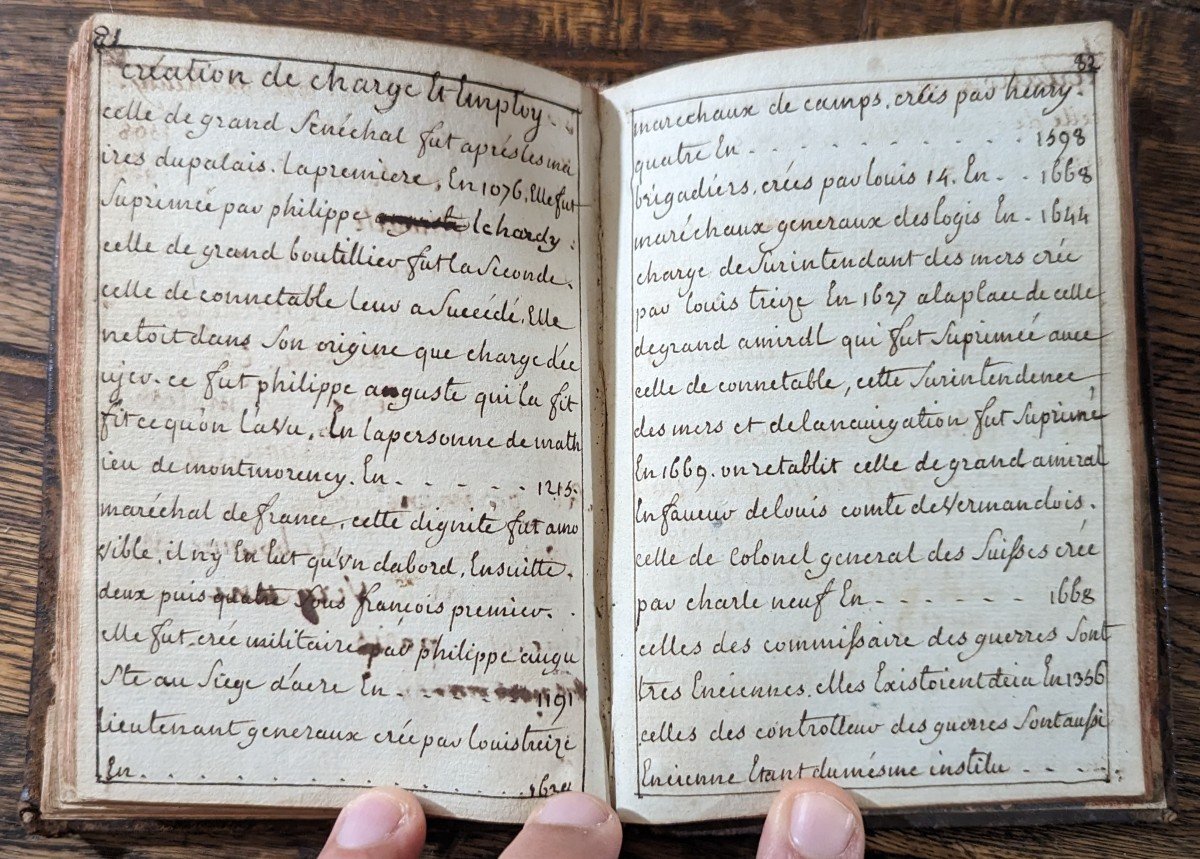 81
création de charge Et Employ
celle de grand Senéchal fut aprés les ma
ires du palais. la premiere, En 1076. Elle fut
Suprimée par philippe lehardy.
celle de grand boutillier fut la Seconde.
celle de connetable leur a Succédé. Elle
netoit dans Son origine que charge déc
ujer. ce fut philippe auguste qui la fit
fit ce qu'on la vu. En la personne de math
ieu de montmorency. En - - - - - 1215.
maréchal de france. cette dignité fut amo
vible. il n'y En Eut qu'vn dabord, Ensuitte.
deux puis quatre sous francois premier.
elle fut crée militaire par philippe augu
ste au Siege d'acre En - 1191
lieutenant generaux crée par louis treize
En. . . . . . . . . . . .
82
marechaux de camps. créés par henry.
quatre En - - - - - - - - - - 1598
brigadiers, créés par louis 14. En - - 1668
maréchaux generaux des logis En - 1644
charge de Surintendant des mers crée
par louis treize En 1627 a la place de celle
de grand amirall qui fut Suprimeé avec
celle de connetable, cette Surintendence
des mers et de la navigation fut Suprimé
En 1669. on retablit celle de grand amiral
En faveur de louis comte de Vermandois.
celle de Colonel general des Suisses crée
par charle neuf En - - - - - - 1668
celles des commissaire des guerres Sont
tres Enciennes. elles Existoient deia En 1356
celles des controlleur des guerres Sont aussi
Encienne Etant du mésme institu - - - -